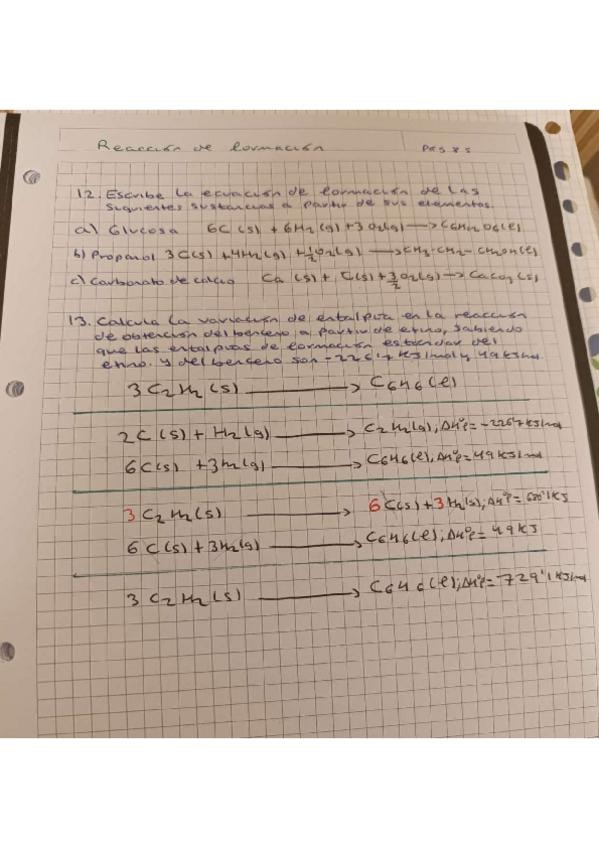 Reacción de formación
12. Escribe la ecuación de formación de las
siguientes sustancias a partir de sus elementos.
a) Glucosa 6C (s) + 6H2(g) + 3O2(g) → C6H12O6(l)
b) Propanol 3C(s) + 4H2(g) + 1/2 O2(g) → CH3-CH2-CH2OH(l)
c) Carbonato de calcio Ca (s) + C(s) + 3/2 O2(g) → CaCO3(s)
13. Calcula la variación de entalpía en la reacción
de obtención del benceno, a partir de etino, sabiendo
que las entalpías de formación estándar del
etino. y del benceno son -226'7 KJ/mol y 49 KJ/mol.
3 C2H2(s) → C6H6(l)
2C(s) + H2(g) → C2H2(g); ΔHºf = -226'7 KJ/mol
6C(s) + 3H2(g) → C6H6(l), ΔHºf = 49 KJ/mol
3 C2H2(s) → 6 C(s) + 3 H2(s); ΔHºf = 680'1 KJ
6 C(s) + 3H2(g) → C6H6(l); ΔHºf = 49 KJ
3 C2H2(s) → C6H6(l); ΔHºf = 729'1 KJ/mol